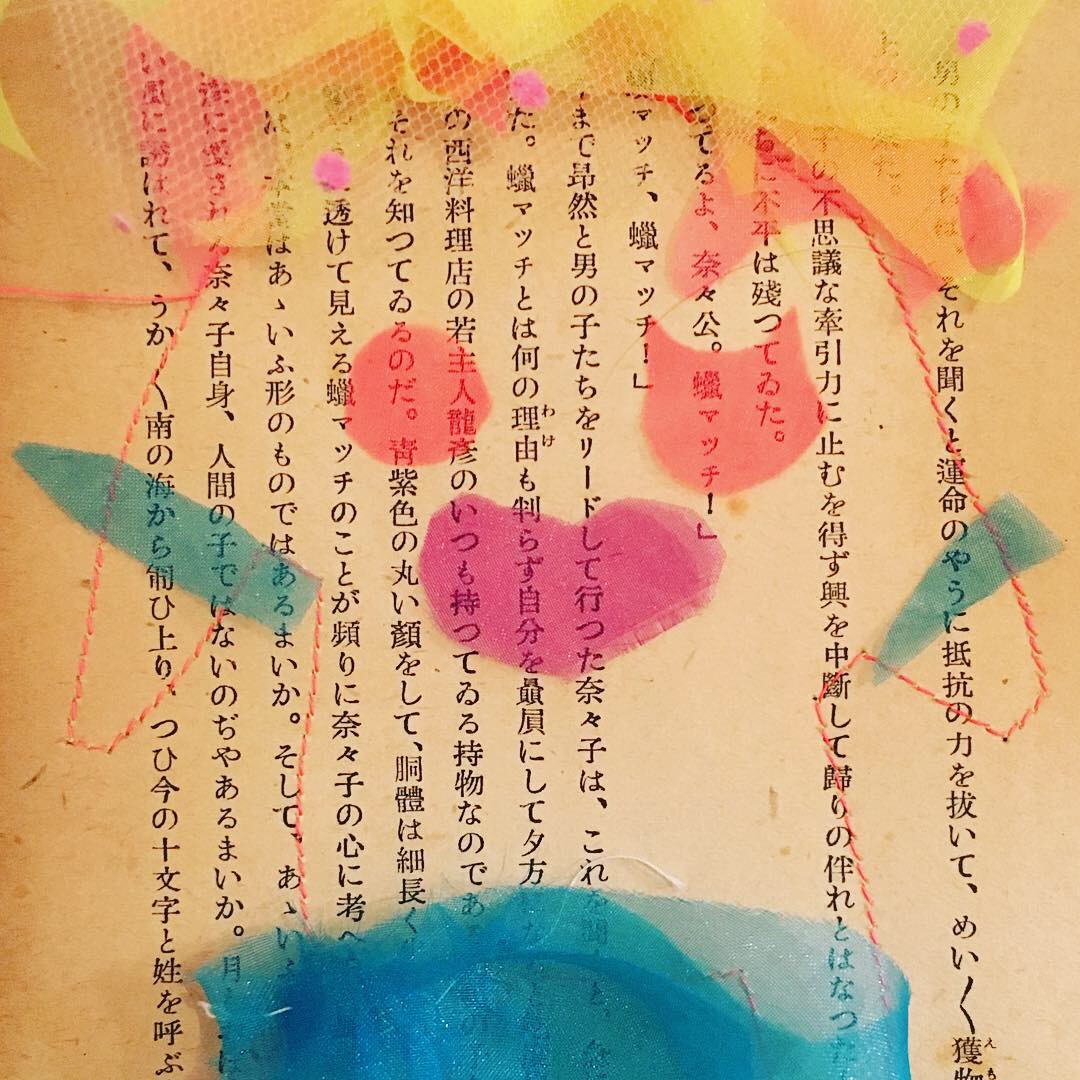 それを聞くと運命のやうに抵抗の力を抜いて、めい〱獲
の不思議な牽引力に止むを得ず興を中斷して歸りの伴れとはなつた
に不平は殘つてゐた。
つてるよ、奈々公。蠟マッチ!」
マッチ、蠟マッチ!」
まで昻然と男の子たちをリードして行つた奈々子は、これを
た。蠟マッチとは何の理由わけも判らず自分を贔屓にして夕方
の西洋料理店の若主人龍彥のいつも持つてゐる持物なのであ
それを知つてゐるのだ。靑紫色の丸い顏をして、胴體は細長く
透けて見える蠟マッチのことが頻りに奈々子の心に考へ
はあゝいふ形のものではあるまいか。そして、あゝい
に愛される奈々子自身、人間の子ではないのぢやあるまいか。月
い風に誘はれて、うか〱南の海から匍ひ上り、つひ今の十文字と姓を呼ぶ